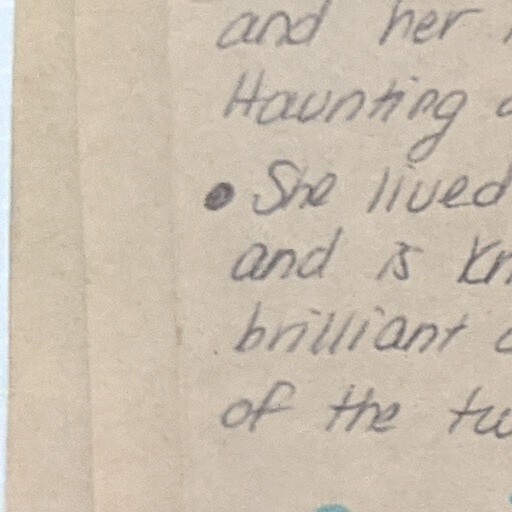 and her
Haunting
• She lived
and is kn
brilliant
of the tw